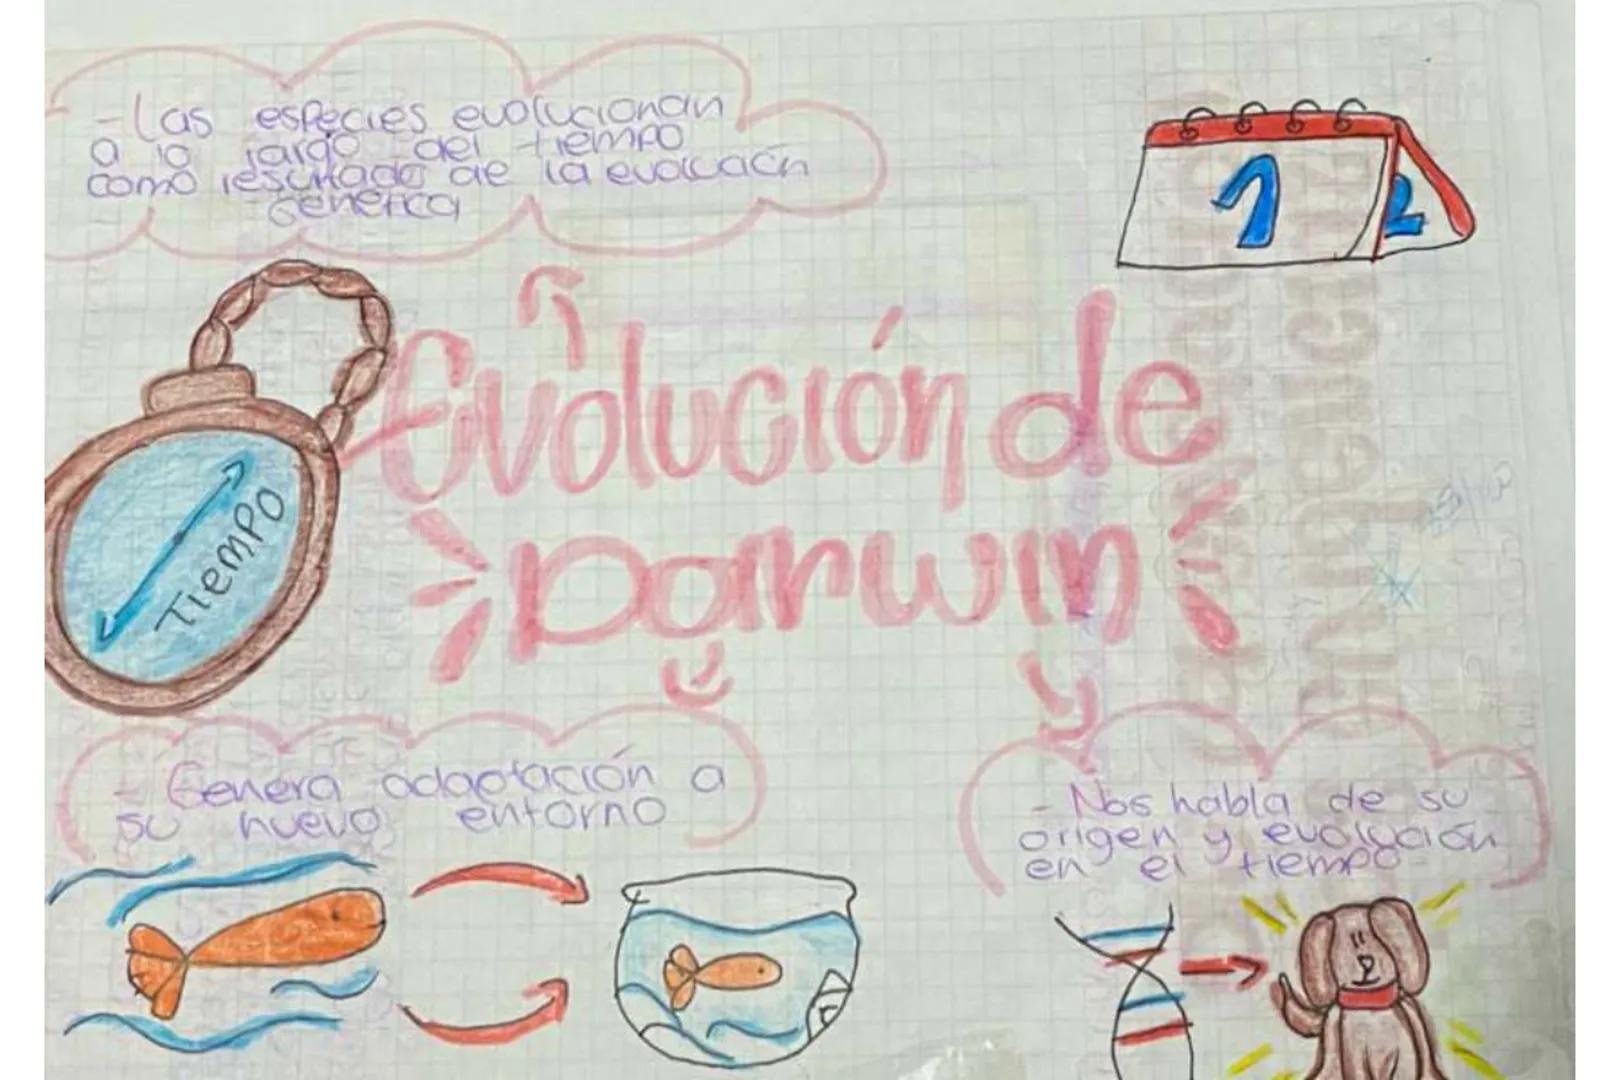 - Las especies evolucionan
a lo largo del tiempo
como resultado de la evolución
Genética
1 2
Evolución de
Darwin
TIEMPO
- Genera adaptación a
su nuevo entorno
- Nos habla de su
origen y evolución
en el tiempo